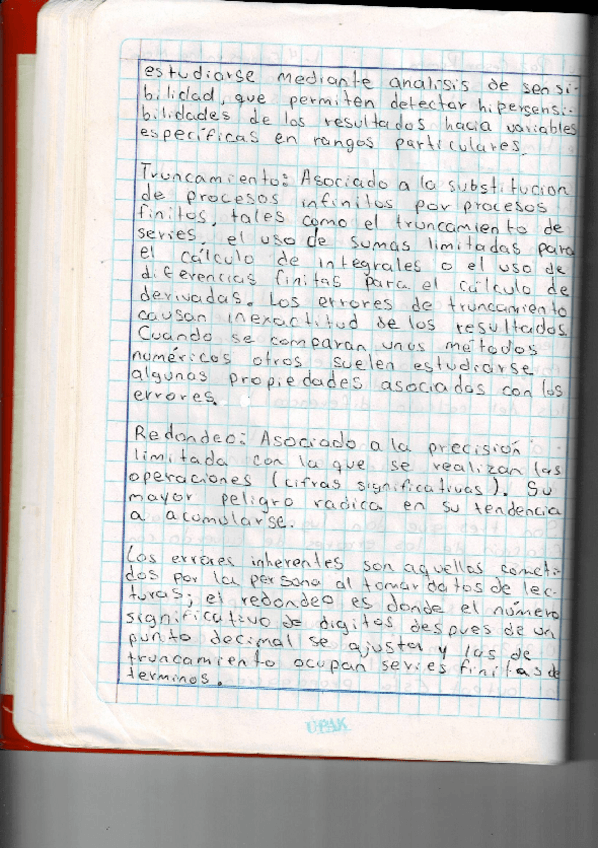 estudiarse mediante analisis de sensi-
bilidad, que permiten detectar hipersensi-
bilidades de los resultados hacia variables
específicas en rangos particulares.
Truncamiento: Asociado a la substitucion
de procesos infinitos por procesos
finitos, tales como el truncamiento de
series, el uso de sumas limitadas para
el cálculo de integrales o el uso de
diferencias finitas para el cálculo de
derivadas. Los errores de truncamiento
causan inexactitud de los resultados.
Cuando se comparan unos métodos
numéricos otros suelen estudiarse
algunas propiedades asociados con los
errores.
Redondeo: Asociado a la precisión
limitada con la que se realizan las
operaciones (cifras significativas). Su
mayor peligro radica en su tendencia
a acumularse.
Los errores inherentes son aquellos cometi-
dos por la persona al tomar datos de lec-
turas; el redondeo es donde el número
significativo de digitos despues de un
punto decimal se ajustar y las de
truncamiento ocupan series finitas de
terminos.